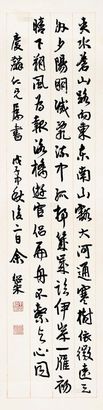 夾水蒼山路向東東南山豁大河通寒樹依微遠天
外夕陽明滅亂流中孤村幾歲臨伊岸一雁初
晴下朔風為報洛橋遊宦侶扁舟不繫與心同
仁兄屬書 戊子秋後二日余